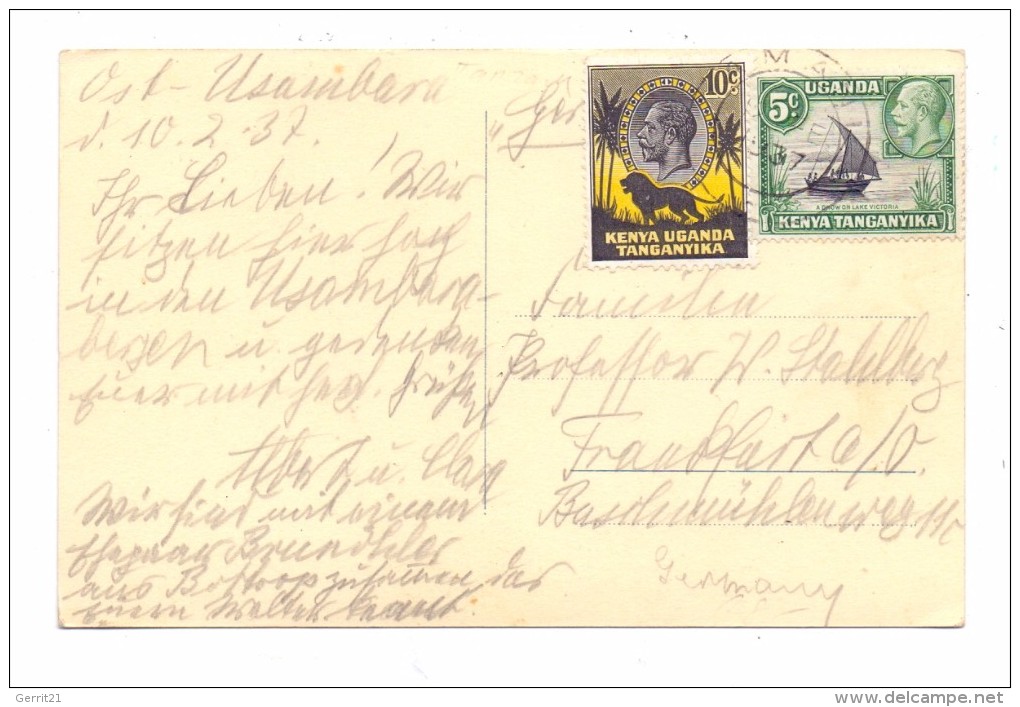 Ost-Usambara
d. 10.2.37.
Ihr Lieben! Wir
sitzen hier hoch
in den Usambara-
bergen u. gedenken
Euer mit herzl. Grüßen
Albert u.
Wir sind mit einem
Ehepaar
aus Bottrop zusammen, das
euern Walter kennt.
10c
KENYA UGANDA
TANGANYIKA
UGANDA
5c
A DHOW ON LAKE VICTORIA
KENYA TANGANYIKA
Familie
Professor W. Stahlberg
Frankfurt a/O.
Buschmühlenweg
Germany
Gerrit21
www.delcampe.net